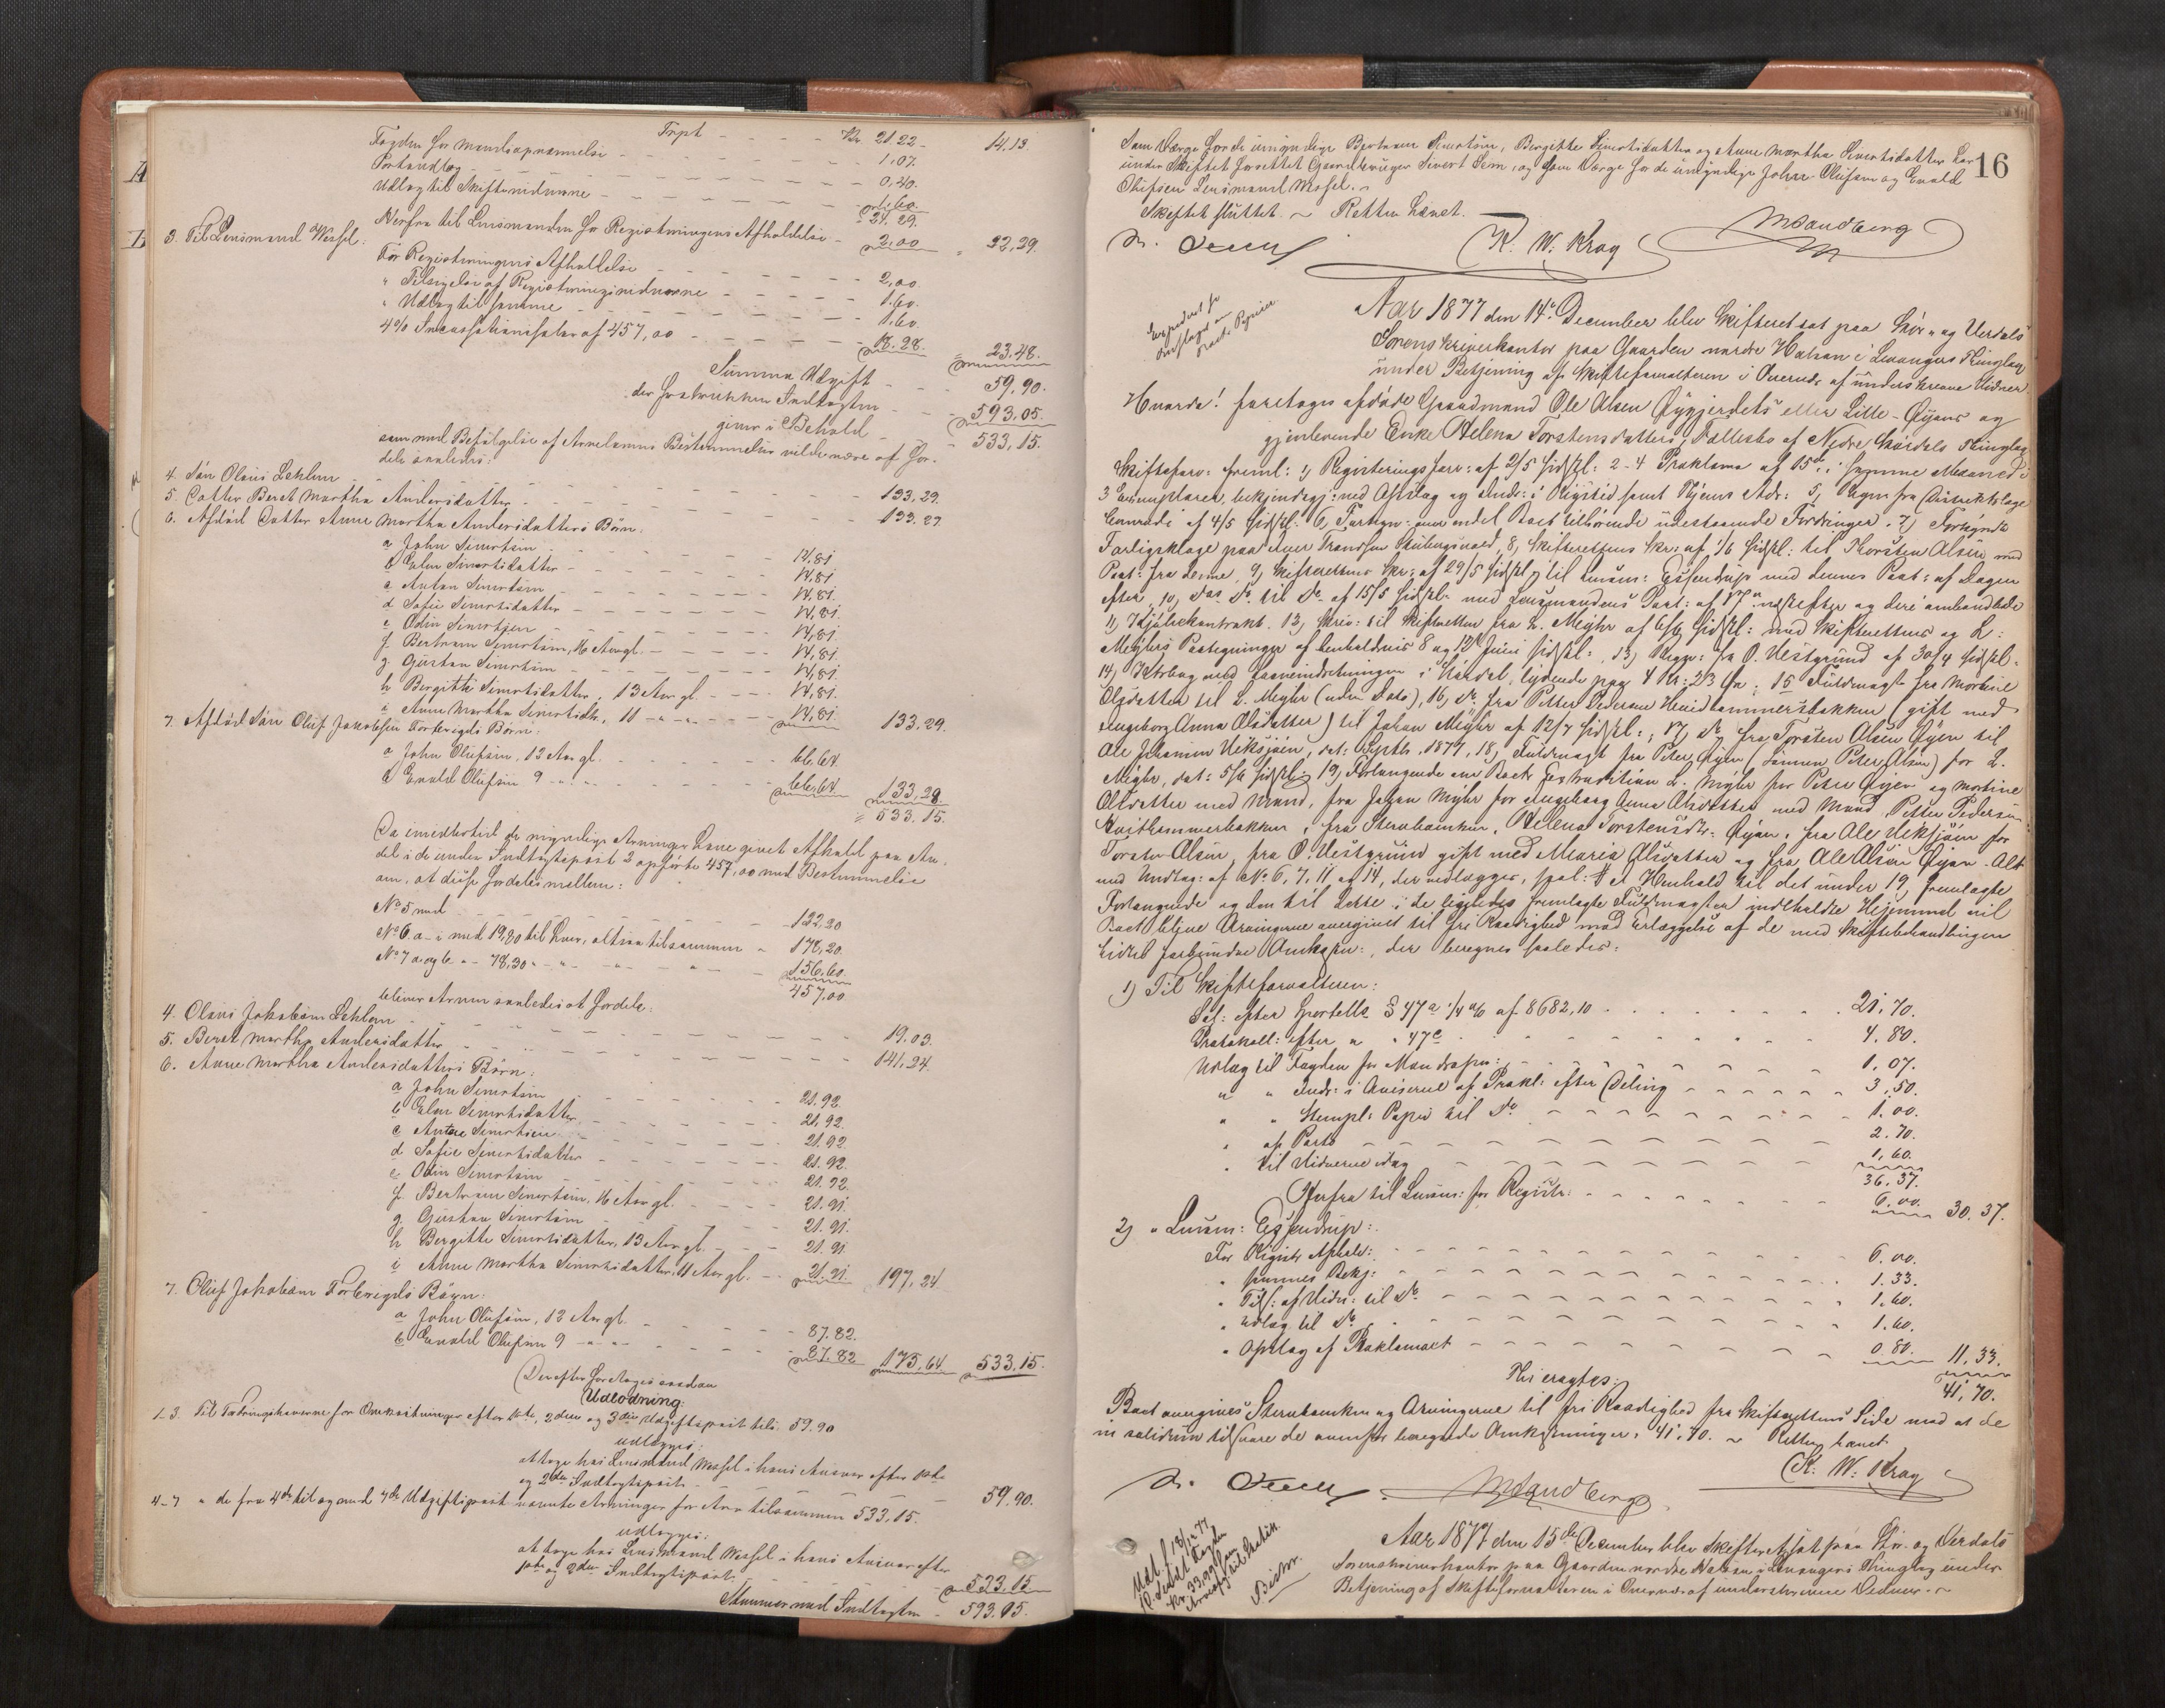 Trpt - - - - Kr. 21.22 - 14.13.
Fogden for Mandsopnævnelse - - - - 1,07.
Portoudlæg - - - - 0,40.
Udlæg til Skiftevidnerne - - - - 1,60.
24.29.
Herfra til Lensmanden for Registreringens Afholdelse - 2,00 " 22,29.
3. Til Lensmand Wessel:
For Registreringens Afholdelse - - - - 2,00
" Tilsigelse af Registreringsvidnerne - - - - 1.60.
" Udlæg til samme - - - - 1.60.
4% Incassationssalær af 457,00 - - - - 18.28. " 23.48.
Summa Udgift - - - 59,90.
der fratrukken Indtægten - - - 593,05.
giver i Behold - 533,15.
som med Befølgelse af Arvelovens Bestemmelser vilde være at for-
dele saaledes:
4. Søn Olaus Leklem - - - - 133,29.
5. Datter Beret Martha Andersdatter - - - - 133.29.
6. Afdød Datter Anne Martha Andersdatters Børn:
a John Sivertsen - - - 14,81
b Elen Sivertsdatter - - - 14,81
c Anton Sivertsen - - - 14,81.
d Sofie Sivertsdatter - - - 14,81.
e Odin Sivertsen - - - 14,81.
f. Bertram Sivertsen, 16 Aar gl. - - - 14,81.
g. Gustav Sivertsen - - - 14,81.
h Bergitte Sivertsdatter, 13 Aar gl. - - - 14,81.
i Anne Martha Sivertsdtr, 11 - " - " - - 14,81. 133,29.
7. Afdød Søn Oluf Jakobsen Forbregds Børn:
a John Olufsen, 12 Aar gl. - - - 66,64.
b Evald Olufsen 9 - " - " - - 66,64 133,28.
= 533.15.
Da imidlertid de myndige Arvinger have givet Afkald paa An-
del i de under Indtægtspost 2 opførte 457,00 med Bestemmelse
om, at disse fordeles mellem:
No 5 med - - - - 122,20
No 6. a - i med 19,80 til hver, altsaa tilsammen - 178,20.
No 7 a og b - " - 78,30 - " - - - - 156,60.
457,00
bliver Arven saaledes at fordele:
4. Olaus Jakobsen Leklem - - - - 19.03.
5. Beret Martha Andersdatter - - - - 141,24.
6. Anne Martha Andersdatters Børn:
a John Sivertsen - - - 21.92.
b Elen Sivertsdatter - - - 21,92.
c Anton Sivertsen - - - 21.92
d Sofie Sivertsdatter - - - 21.92.
e Odin Sivertsen - - - 21.92.
f. Bertram Sivertsen, 16 Aar gl. - - - 21.91.
g. Gustav Sivertsen - - - 21.91.
h Bergitte Sivertsdatter, 13 Aar gl. - - - 21.91
i Anne Martha Sivertsdatter, 11 Aar gl. - - 21.91. 197,24.
7. Oluf Jakobsen Forbregds Børn:
a John Olufsen, 12 Aar gl. - - - 87.82.
b Evald Olufsen 9 - " - " - - 87.82 175,64 533.15.
Derefter foretoges saadan
Udlodning:
1-3. Til Fordringshaverne for Omkostninger efter 1ste, 2den og 3die Udgiftspost tils. 59.90
udlægges:
at tage hos Lensmand Wessel i hans Ansvar efter 1ste
og 2den Indtægtspost - - - - 59.90.
4-7 " de fra 4de til og med 7de Udgiftspost nævnte Arvinger for Arv tilsammen 533.15.
udlægges:
at tage hos Lensmand Wessel i hans Ansvar efter
1ste og 2den Indtægtspost - - - 533.15
Stemmer med Indtægten - 593.05.
16
Som Værge for de umyndige Bertram Sivertsen, Bergitte Sivertsdatter og Anne Martha Sivertsdatter har
under Skiftet fremmødt Gaardbruger Sivert Sem, og som Værge for de umyndige John Olufsen og Evald
Olufsen Lensmand Wessel.
Skiftet sluttet. ~ Retten hævet.
K. W. Krag
M. Sandberg
Aar 1877 den 14de December blev Skifteret sat paa Stør- og Verdals
Sorenskriverkontor paa Gaarden nordre Halsan i Levangers Thinglag
under Betjening af Skifteforvalteren i Overvær af underskrevne Vidner.
Hvorda! foretoges afdøde Gaardmand Ole Olsen Øygjerdets eller Lille-Øyens og
gjenlevende Enke Helena Torstensdatters Fællesbo af Nedre Stjørdals Thinglag
Skifteforv: freml: 1, Registeringsforr: af 2/5 sidstl: 2-4 Proklama af 15de i samme Maaned i
3 Exemplarer, bekjendtgj: ved Opslag og Indr: i Rigstid samt Thjems Adr: 5, Regn fra Distriktslæge
af 4/5 sidstl: 6, Fortegn: over endel Boet tilhørende udestaaende Fordringer. 7) Forkyndt
Forligsklage paa Iver 8, Skifterettens Skr: af 1/6 sidstl: til Thorsten Olsen med
Paat: fra denne, 9, Skifterettens Skr: af 29/5 sidstl: til Lensm: Essendrup med dennes Paat: af Dagen
efter, 10, Do. Do. til Do. af 15/5 sidstl. med Lensmandens Paat: af 17de næstefter og deri omhandlede
11, Kjøbekontrakt. 12, Skriv: til Skifteretten fra L. Mejhr af 6/6 sidstl: med Skifterettens og L:
Mejhrs Paategninger af henholdsvis 8 og 12te Juni sidstl:, 13, Regn: fra O. Vestgrund af 30/4 sidstl:
14, Kvitbog med Laaneindretningen i Stjørdal, lydende paa 4 Kr: 23 Øre; 15 Fuldmagt fra Martine
Olsdatter til L. Mejhr (uden Dato), 16, Do. fra Petter Pedersen Hvidhammersbakken (gift med
Ingeborg Anna Olsdatter) til Johan Mejhr af 12/7 sidstl:; 17, Do. fra Torsten Olsen Øyen til
Ole Johannes Viksjøen, dat: Septbr. 1877, 18, Fuldmagt fra Peter Øyen (Sønnen Peter Olsen) for L.
Mejhr, dat: 5/6 sidstl: 19, Forlangende om Boets Extradition L. Mejhr for Peter Øyen og Martine
Olsdatter med Mand, fra Johan Mejhr for Ingeborg Anna Olsdatter med Mand Petter Pedersen
Hvidhammerbakken, fra Stervboenken, Helena Torstensdtr: Øyen, fra Ole Viksjøen for
Torsten Olsen, fra O. Vestgrund gift med Maria Olsdatter og fra Ole Olsen Øyen. Alt
med Undtag: af No 6, 7, 11 og 14, der vedlægges, I Henhold til det under 19, fremlagte
Forlangende og den til dette i de ligeledes fremlagte Fuldmagter indeholdte Hjemmel vil
Boet blive Arvingerne overgivet til fri Raadighed mod Erlæggelse af de med Skiftebehandlingen
hidtil forbundne Omkostn:, der beregnes saaledes:
1) Til Skifteforvalteren:
Sal: efter Sportell. § 47 a 1/4 % af 8682,10 - - - - 21,70.
Protokoll: efter " " 47 c - - - - 4.80.
Udlæg til Fogden for Mandsopn: - - - - 1,07.
" " Indr: i Aviserne af Prokl: efter Deling - - - - 3,50.
" " Stempl: Papir til Do. - - - - 1.00.
" af Porto - - - - 2.70.
" til Vidnerne idag - - - - 1,60.
36.37.
Herfra til Lensm: for Registr: - - - - 6.00. 30.37.
2) " Lensm: Essendrup:
For Registr. Afhold: - - - - 6.00.
" sammes Bekj: - - - - 1.33.
" Tils: af Vidn: til Do. - - - - 1.60.
" Udlæg til Do. - - - - 1.60.
" Opslag af Proklamaet - - - - 0.80. 11,33.
41,70.
Thi eragtes:
Boet overgives Stervboenken og Arvingerne til fri Raadighed fra Skifterettens Side mod at de
in solidum tilsvare de ovenfor beregnede Omkostninger: 41,70. ~ Retten hævet.
K. W. Krag
M. Sandberg
Udl. 13/12 77
Aar 1877 den 15de December blev Skifteret sat paa Stør- og Verdals
Sorenskriverkontor paa Gaarden nordre Halsan i Levangers Thinglag under
Betjening af Skifteforvalteren i Overvær af underskrevne Vidner. ~